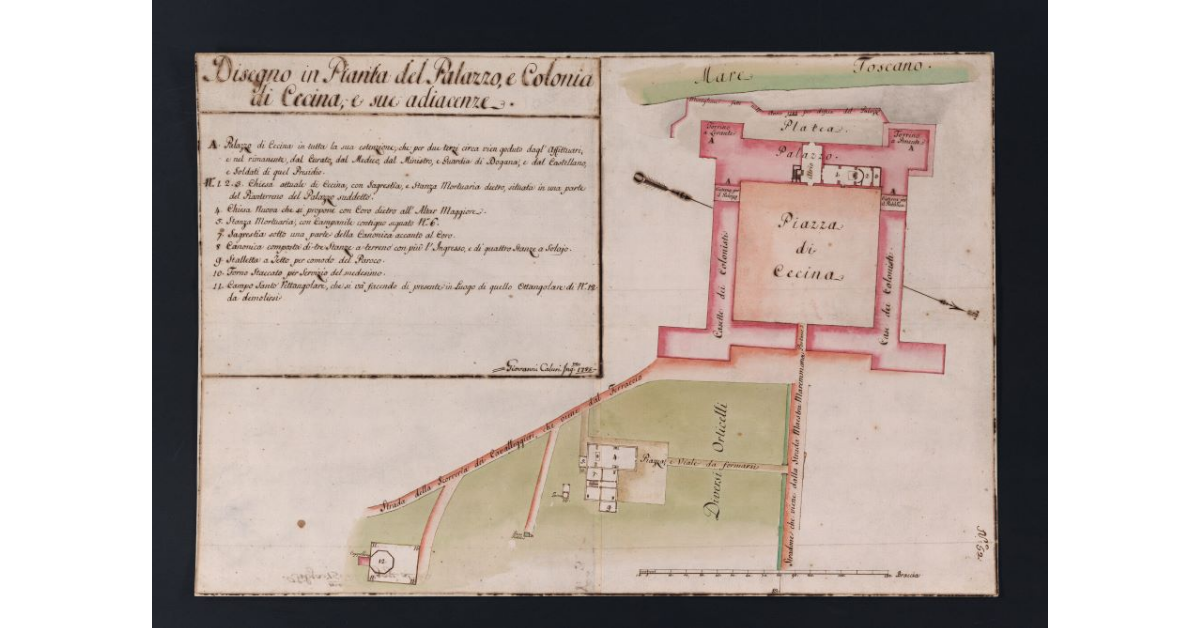 Disegno in Pianta del Palazzo, e Colonia
di Cecina, e sue adiacenze.
A. Palazzo di Cecina in tutta la sua estenzione, che per due terzi circa vien goduto dagl' Affittuari,
e nel rimanente, dal Curato, dal Medico, dal Ministro, e Guardia di Dogana, e dal Castellano,
e Soldati di quel Presidio.
N. 1. 2. 3. Chiesa attuale di Cecina, con Sagrestia, e Stanza Mortuaria dietro, situata in una parte
del Pianterreno del Palazzo suddetto.
4. Chiesa Nuova che si propone con Coro dietro all' Altar Maggiore.
5. Stanza Mortuaria, con Campanile contiguo segnato N. 6.
7. Sagrestia sotto una parte della Canonica accanto al Coro.
8. Canonica composta di tre Stanze a terreno con più l' Ingresso, e di quattro Stanze a Solajo.
9. Stalletta a Tetto per comodo del Paroco.
10. Forno Staccato per Servizio del medesimo.
11. Campo Santo Rettangolare, che si và facendo di presente in Luogo di quello Ottangolare di N. 12
da demolirsi
Giovanni Calusi Ing.re 1786
Mare Toscano.
Platea.
Torrino a Levante
A
Torrino a Ponente
A
Palazzo.
A
Piazza
di
Cecina
Casette dei Colonisti
Case dei Colonisti
Strada della Sterreria dei Cavalleggieri che viene dal Terraccio
Piazza, e Viale da formarsi
Diversi Orticelli
Stradone che viene dalla Strada Maestra Maremmana
4
12
11
Braccia
N. 62